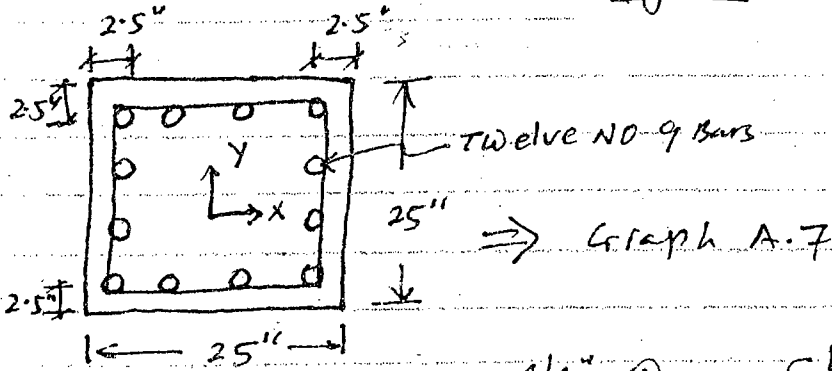 2.5" 2.5"
2.5"
Twelve NO 9 Bars
Y
X
25"
⇒ Graph A.7
2.5"
25"